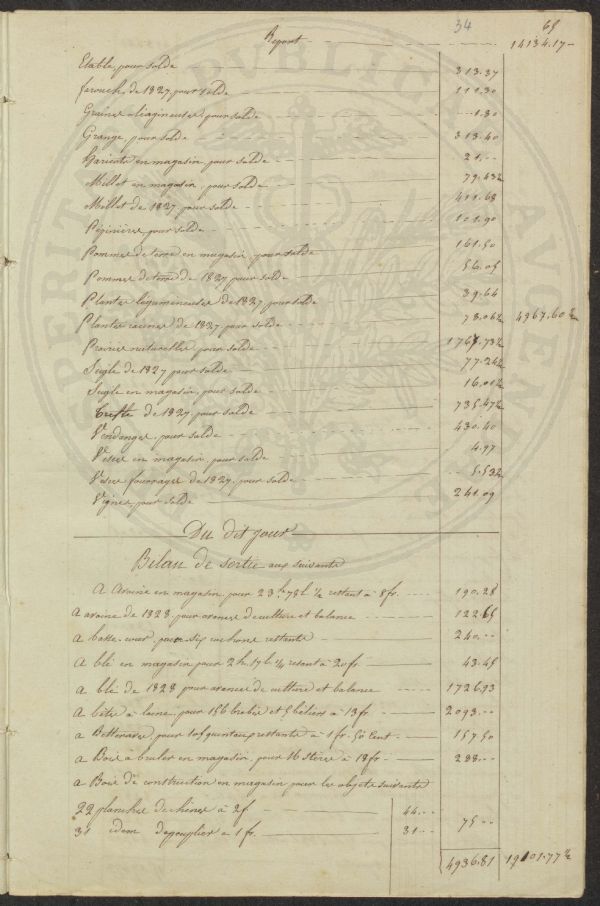 34 65
Report 14134.17
Etable, pour solde 313.37
farouch, de 1827, pour solde 111.30
Graines oléagineuses, pour solde 1.30
Grange, pour solde 313.40
Haricots en magasin, pour solde 21
Millet en magasin, pour solde 79.43½
Millet de 1827, pour solde 411.68
Pépinière, pour solde 101.90
Pommes de terre en magasin, pour solde 161.50
Pommes de terre de 1827 pour solde 56.05
Plantes légumineuses de 1827, pour solde 39.64
Plantes racines de 1827, pour solde 78.06½ 4967.60½
Prairies naturelles, pour solde 1767.73½
Seigle de 1827 pour solde 77.24½
Seigle en magasin, pour solde 16.01½
de 1827, pour solde 735.47½
Vendanges, pour solde 430.40
Vesces en magasin, pour solde 4.97
Vesces fourrages de 1827, pour solde 5.53½
Vignes, pour solde 241.09
Du dit jour
Bilan de sortie aux suivants
A Avoine en magasin, pour 23 h. 78 l ½ restant à 8 fr. 190.28
A avoine de 1828, pour avances de culture et balance 122.65
a basse-cour, pour six cochons restants 240
a blé en magasin pour 2 h. 17 l. ¼ restant à 20 fr 43.45
a blé de 1828 pour avances de culture et balance 1726.93
A bêtes à laine, pour 156 brebis et 5 béliers à 13 fr. 2093
a Betteraves, pour 105 quintaux restants à 1 fr. 50 Cent. 157.50
a Bois a bruler en magasin, pour 16 stères à 18 fr 288
a Bois de construction en magasin pour les objets suivants
22 planches de chênes à 2 f 44
31 idem de peuplier à 1 fr. 31 75
4936.81 19101.77½
VERITAS PUBLICA